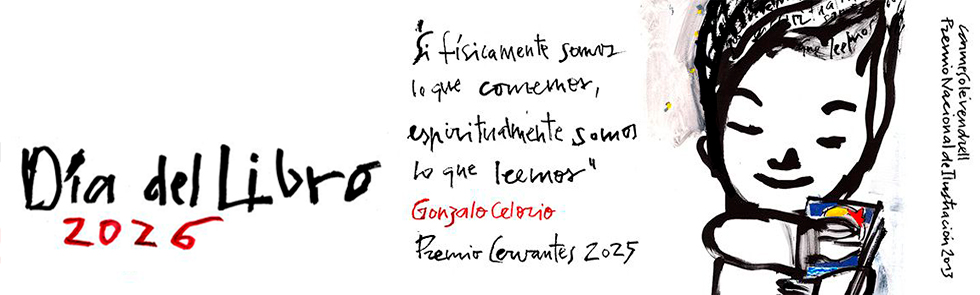 Día del Libro
2026
"Si físicamente somos
lo que comemos,
espiritualmente somos
lo que leemos"
Gonzalo Celorio
Premio Cervantes 2025
que leemos
carmesolévendrell
Premio Nacional de Ilustración 2013